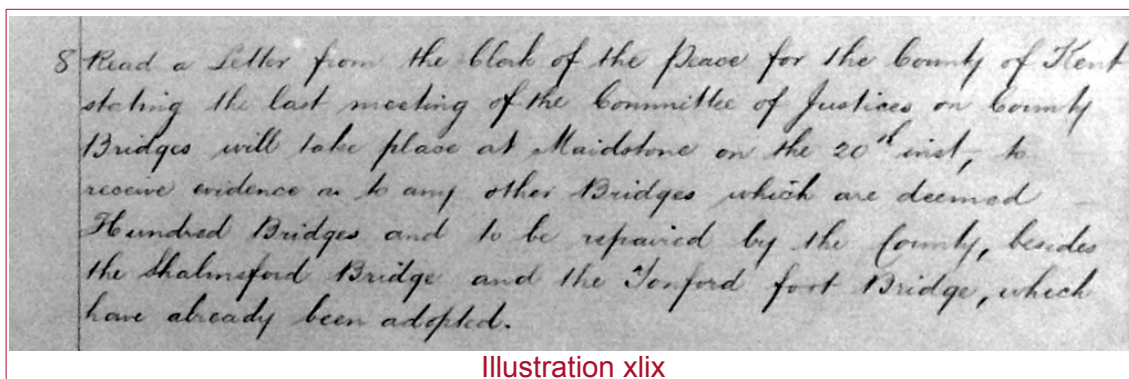 8 Read a Letter from the Clerk of the Peace for the County of Kent
stating the last meeting of the Committee of Justices on County
Bridges will take place at Maidstone on the 20th inst, to
receive evidence as to any other Bridges which are deemed
Hundred Bridges and to be repaired by the County, besides
the Shalmsford Bridge and the Tonford foot Bridge, which
have already been adopted.
Illustration xlix